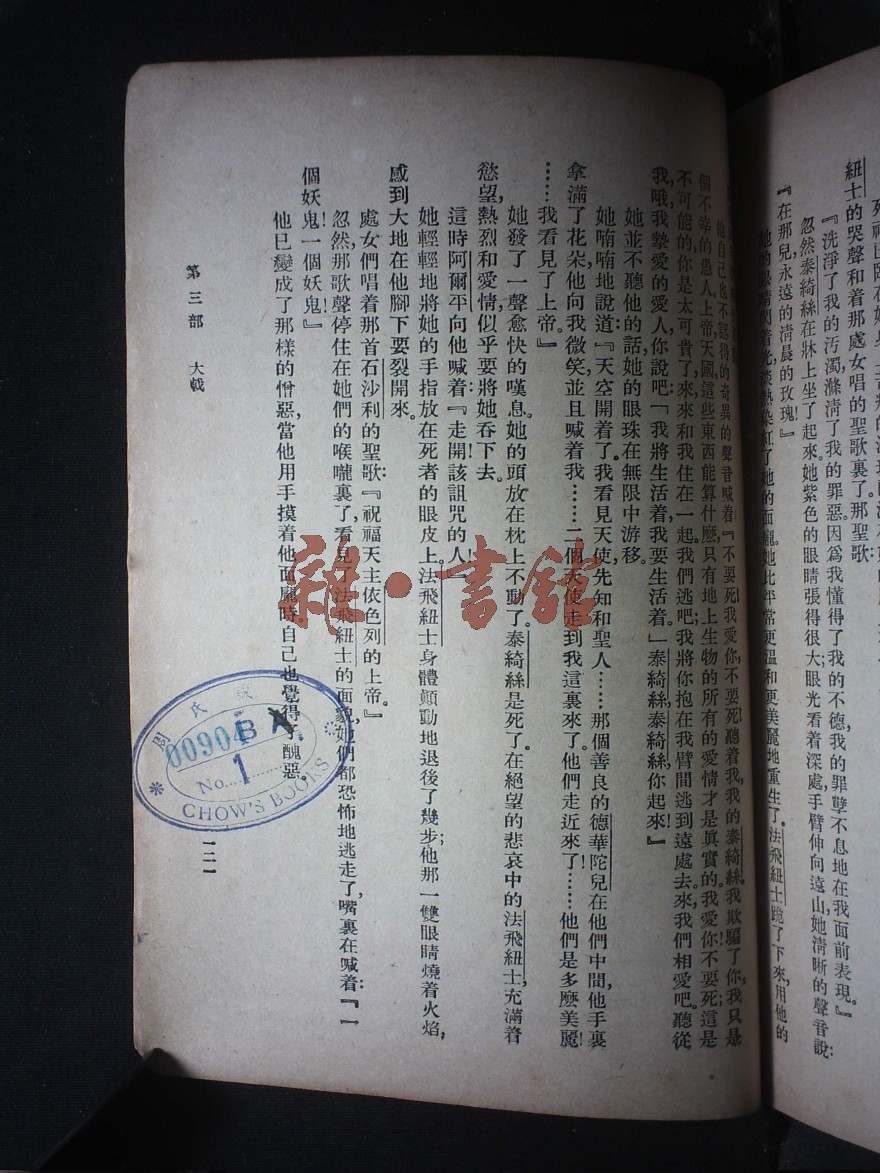 紐士的哭聲和着那處女唱的聖歌裏了。那聖歌:
『洗淨了我的汚濁,滌淸了我的罪惡因爲我懂得了我的不德,我的罪孽不息地在我面前表現。』
忽然泰綺絲在牀上坐了起來。她紫色的眼睛張得很大;眼光看着深處,手臂伸向遠山她淸晰的聲音說:
『在那兒,永遠的淸晨的玫瑰!』
她的眼睛閃着光,淡熱染紅了她的面龐。她比平常更溫和更美麗地重生了。法飛紐士跪了下來,用他的
他自己也不認得的奇異的聲音喊着『不要死!我愛你,不要死聽着我,我的泰綺絲。我欺騙了你,我只是
個不幸的愚人上帝天國,這些東西能算什麼只有地上生物的所有的愛情才是眞實的。我愛你!不要死;這是
不可能的,你是太可貴了,來,來和我住在一起。我們逃吧!我將你抱在我臂間逃到遠處去。來,我們相愛吧。聽從
我,哦我摯愛的愛人,你說吧:「我將生活着,我要生活着。」泰綺絲,泰綺絲,你起來!』
她並不聽他的話她的眼珠在無限中游移。
她喃喃地說道:『天空開着了。我看見天使先知和聖人……那個善良的德華陀兒在他們中間,他手裏
拿滿了花朵他向我微笑並且喊着我……二個天使走到我這裏來了。他們走近來了……他們是多麼美麗!
……我看見了上帝』
她發了一聲愈快的嘆息。她的頭放在枕上不動了。泰綺絲是死了。在絕望的悲哀中的法飛紐士,充滿着
慾望,熱烈和愛情似乎要將她吞下去。
這時阿爾平向他喊着『走開該詛咒的人!』
她輕輕地將她的手指放在死者的眼皮上。法飛紐士身體顚動地退後了幾步;他那一雙眼睛燒着火焰,
感到大地在他腳下要裂開來。
處女們唱着那首石沙利的聖歌:『祝福天主依色列的上帝。』
忽然那歌聲停住在她們的喉嚨裏了,看見了法飛紐士的面貌她們都恐怖地逃走了,嘴裏在喊着:『一
個妖鬼!一個妖鬼!』
他已變成了那樣的憎惡,當他用手摸着他面龐時自己也覺得了醜惡。
第三部 大戟
一二一
雜·書館
00904
B
No. 1
CHOW'S BOOKS